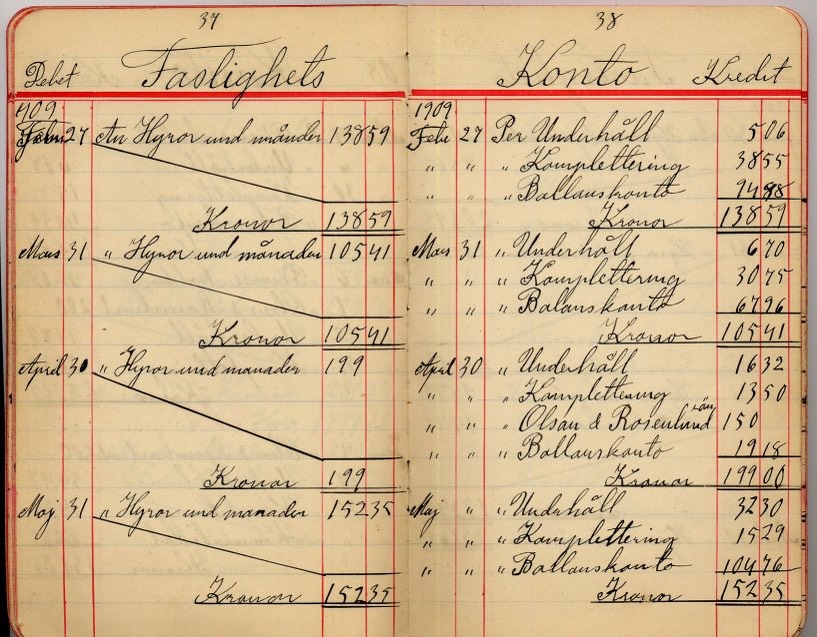 37
Debet Fastighets
1909
Febr 27 An Hyror und månder 138 59
Kronor 138 59
Mars 31 " Hyror und månader 105 41
Kronor 105 41
April 30 " Hyror und manader 199
Kronor 199
Maj 31 " Hyror und manader 152 35
Kronor 152 35
38
Konto Kredit
1909
Febr 27 Per Underhåll 5 06
" " " Komplettering 38 55
" " " Ballanskonto 94 98
Kronor 138 59
Mars 31 " Underhåll 6 70
" " " Komplettering 30 75
" " " Balanskonto 67 96
Kronor 105 41
April 30 " Underhåll 16 32
" " " Komplettering 13 50
" " " Olsan & Rosenlund 150
" " " Ballanskonto 19 18
Kronor 199 00
Maj " " Underhåll 32 30
" " " Komplettering 15 29
" " " Ballanskonto 104 76
Kronor 152 35